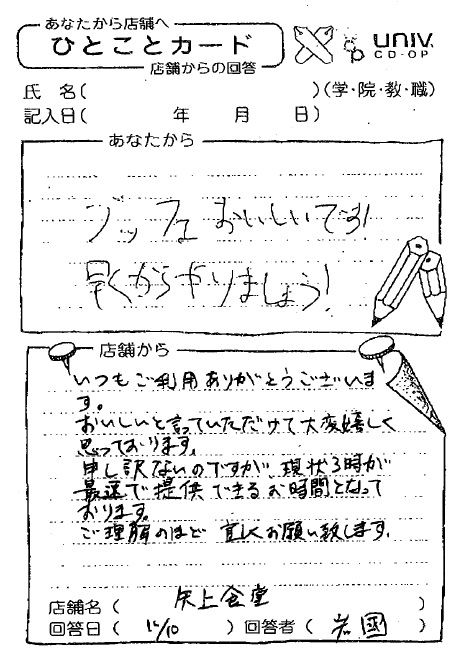 あなたから店舗へ
ひとことカード
店舗からの回答
UNIV.
CO-OP
氏 名( )(学・院・教・職)
記入日( 年 月 日)
あなたから
ブッフェおいしいです!
早くからやりましょう!
店舗から
いつもご利用ありがとうございま
す。
おいしいと言っていただけて大変嬉しく
思っております。
申し訳ないのですが、現状3時が
最速で提供できるお時間となって
おります。
ご理解のほど 宜しくお願い致します。
店舗名( 矢上食堂 )
回答日( 12/10 )回答者( 岩國 )